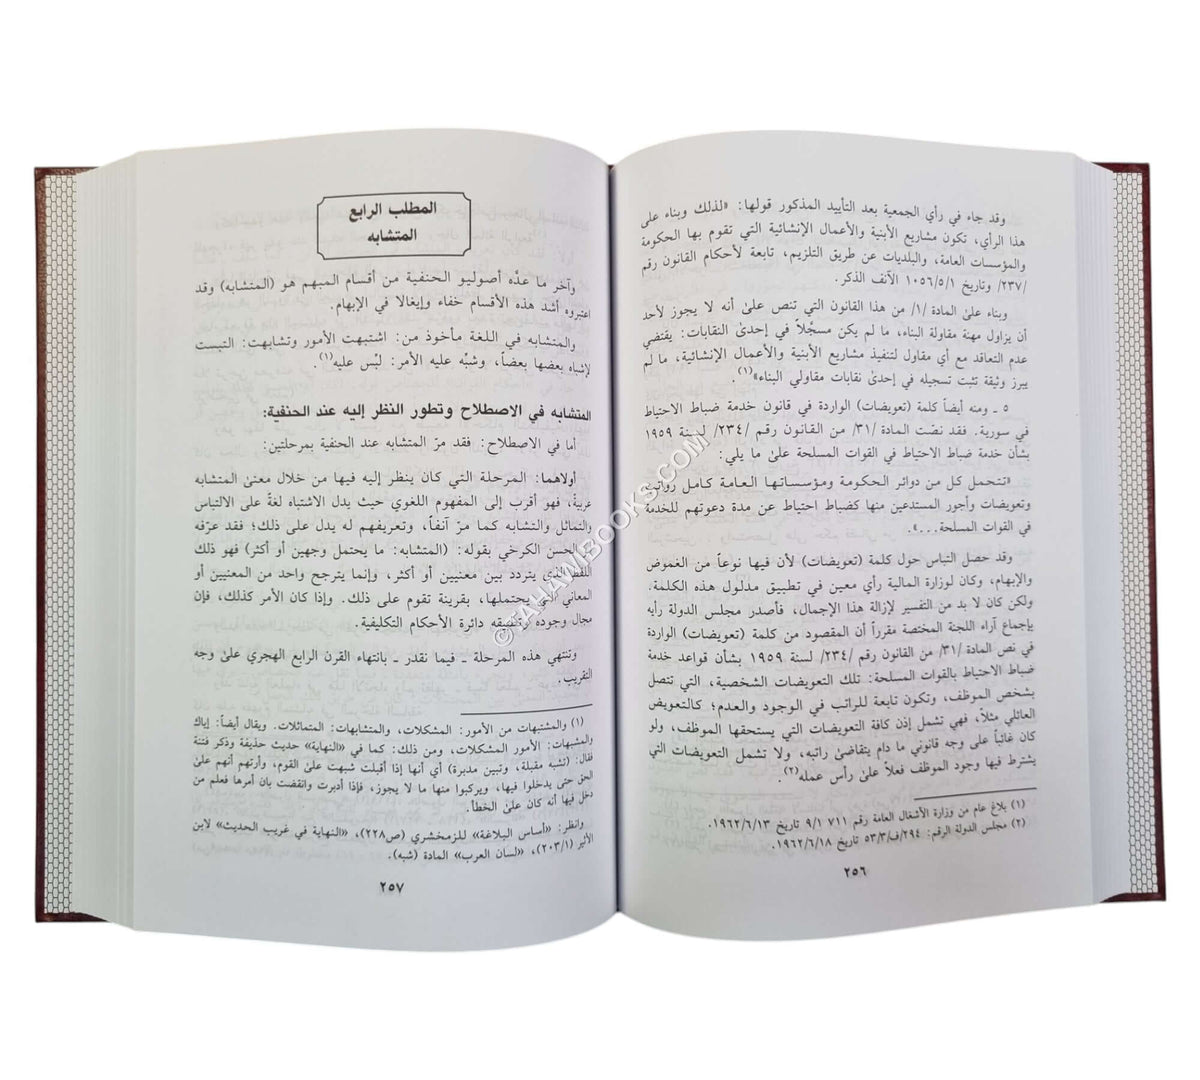 وقد جاء في رأي الجمعية بعد التأييد المذكور قولها: «لذلك وبناء على
هذا الرأي، تكون مشاريع الأبنية والأعمال الإنشائية التي تقوم بها الحكومة
والمؤسسات العامة، والبلديات عن طريق التلزيم، تابعة لأحكام القانون رقم
/٢٣٧/ وتاريخ ١٠٥٦/٥/١ الآنف الذكر.
وبناء على المادة /١/ من هذا القانون التي تنص على أنه لا يجوز لأحد
أن يزاول مهنة مقاولة البناء، ما لم يكن مسجّلاً في إحدى النقابات: يقتضي
عدم التعاقد مع أي مقاول لتنفيذ مشاريع الأبنية والأعمال الإنشائية، ما لم
يبرز وثيقة تثبت تسجيله في إحدى نقابات مقاولي البناء»(١).
٥ ـ ومنه أيضاً كلمة (تعويضات) الواردة في قانون خدمة ضباط الاحتياط
في سورية. فقد نصّت المادة /٣١/ من القانون رقم /٢٣٤/ لسنة ١٩٥٩
بشأن خدمة ضباط الاحتياط في القوات المسلحة على ما يلي:
«تتحمل كل من دوائر الحكومة ومؤسساتها العامة كامل رواتب
وتعويضات وأجور المستدعين منها كضباط احتياط عن مدة دعوتهم للخدمة
في القوات المسلحة...».
وقد حصل التباس حول كلمة (تعويضات) لأن فيها نوعاً من الغموض
والإبهام، وكان لوزارة المالية رأي معين في تطبيق مدلول هذه الكلمة.
ولكن كان لا بد من التفسير لإزالة هذا الإجمال، فأصدر مجلس الدولة رأيه
بإجماع آراء اللجنة المختصة مقرراً أن المقصود من كلمة (تعويضات) الواردة
في نص المادة /٣١/ من القانون رقم /٢٣٤/ لسنة ١٩٥٩ بشأن قواعد خدمة
ضباط الاحتياط بالقوات المسلحة: تلك التعويضات الشخصية، التي تتصل
بشخص الموظف، وتكون تابعة للراتب في الوجود والعدم؛ كالتعويض
العائلي مثلاً، فهي تشمل إذن كافة التعويضات التي يستحقها الموظف، ولو
كان غائباً على وجه قانوني ما دام يتقاضى راتبه، ولا تشمل التعويضات التي
يشترط فيها وجود الموظف فعلاً على رأس عمله(٢).
(١) بلاغ عام من وزارة الأشغال العامة رقم ٧١١ ٩/١ تاريخ ١٩٦٢/٦/١٣.
(٢) مجلس الدولة الرقم: ٢٩٤/ف/٥٣/٣ تاريخ ١٩٦٢/٦/١٨.
٢٥٦
المطلب الرابع
المتشابه
وآخر ما عدَّه أصوليو الحنفية من أقسام المبهم هو (المتشابه) وقد
اعتبروه أشد هذه الأقسام خفاء وإيغالا في الإبهام.
والمتشابه في اللغة مأخوذ من: اشتبهت الأمور وتشابهت: التبست
لإشباه بعضها بعضاً، وشبِّه عليه الأمر: لبّس عليه(١).
المتشابه في الاصطلاح وتطور النظر إليه عند الحنفية:
أما في الاصطلاح: فقد مرّ المتشابه عند الحنفية بمرحلتين:
أولاهما: المرحلة التي كان ينظر إليه فيها من خلال معنى المتشابه
عربيةً، فهو أقرب إلى المفهوم اللغوي حيث يدل الاشتباه لغةً على الالتباس
والتماثل والتشابه كما مرّ آنفاً، وتعريفهم له يدل على ذلك؛ فقد عرّفه
الحسن الكرخي بقوله: (المتشابه: ما يحتمل وجهين أو أكثر) فهو ذلك
اللفظ الذي يتردد بين معنيين أو أكثر، وإنما يترجح واحد من المعنيين أو
المعاني التي يحتملها، بقرينة تقوم على ذلك. وإذا كان الأمر كذلك، فإن
مجال وجوده وتطبيقه دائرة الأحكام التكليفية.
وتنتهي هذه المرحلة ـ فيما نقدر ـ بانتهاء القرن الرابع الهجري على وجه
التقريب.
(١) والمشتبهات من الأمور: المشكلات، والمتشابهات: المتماثلات. ويقال أيضاً: إياك
والمشبهات: الأمور المشكلات، ومن ذلك: كما في «النهاية» حديث حذيفة وذكر فتنة
فقال: (تشبه مقبلة، وتبين مدبرة) أي أنها إذا أقبلت شبهت على القوم، وأرتهم أنهم على
الحق حتى يدخلوا فيها، ويركبوا منها ما لا يجوز، فإذا أدبرت وانقضت بان أمرها فعلم من
دخل فيها أنه كان على الخطأ.
وانظر: «أساس البلاغة» للزمخشري (ص٢٢٨)، «النهاية في غريب الحديث» لابن
الأثير (٢٠٣/١)، «لسان العرب» المادة (شبه).
٢٥٧
© TAHAWIBOOKS.COM